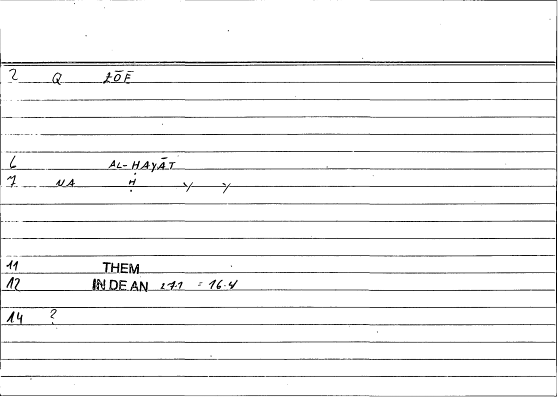 2 Q ŁŌF
6 AL-HAYĀT
7 NA Ḥ y y
11 THEM
12 IN DE AN 271 = 16.4
14 ?